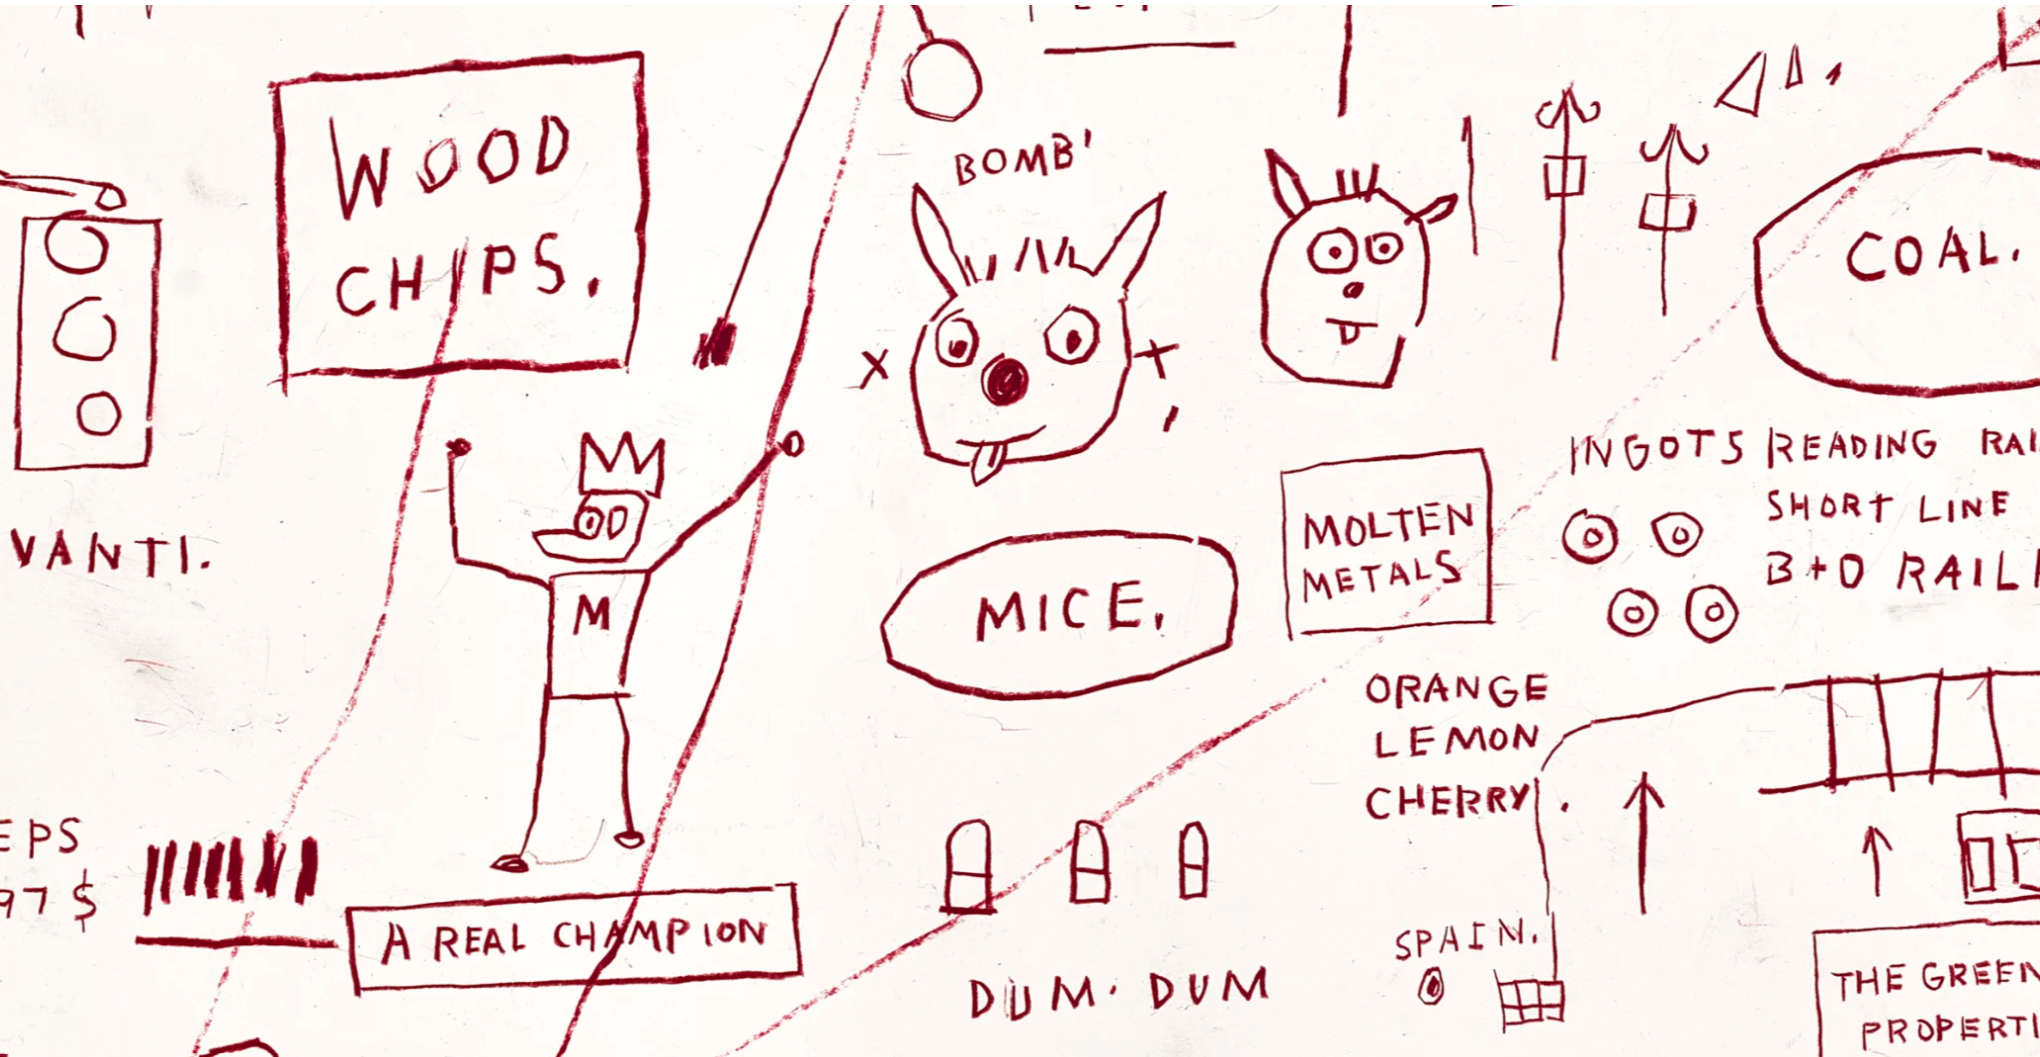 WOOD
CHIPS.
BOMB'
COAL.
INGOTS
READING RAI
SHORT LINE
B+O RAIL
MOLTEN
METALS
VANTI.
M
MICE.
ORANGE
LEMON
CHERRY.
EPS
97 $
A REAL CHAMPION
DUM. DUM
SPAIN.
THE GREEN
PROPERTI